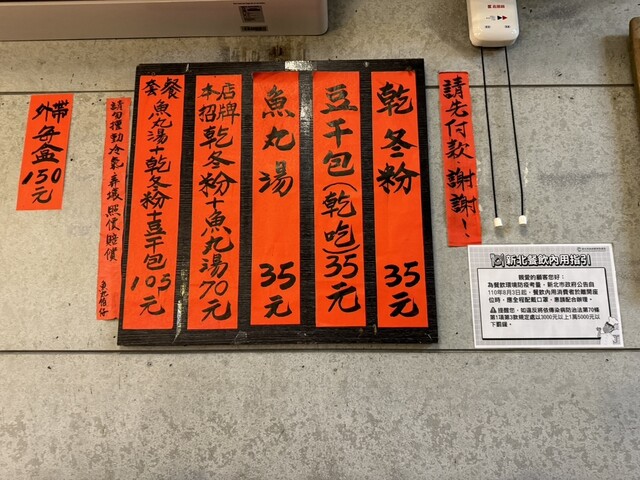 乾冬粉 35元
豆干包(乾吃)35元
魚丸湯 35元
本店招牌
乾冬粉+魚丸湯70元
套餐
魚丸湯+乾冬粉+豆干包105元
外帶
每盒
130元
請勿撞動冷氣弄壞照價賠償
請先付款,謝謝!
新北餐飲內用指引
親愛的顧客您好:
為餐飲環境防疫考量,新北市政府公告自
110年8月3日起,餐飲內用消費者於離開座
位時,應全程配戴口罩,惠請配合辦理。
提醒您,如違反將依傳染病防治法第70條
第1項第3款規定處以3000元以上1萬5000元以
下罰鍰。